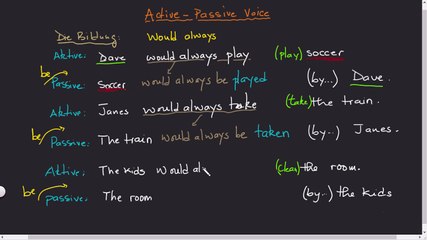 Active - Passive Voice
Die Bildung: Would always
Aktive: Dave would always play (play) soccer
be Passive: Soccer would always be played (by...) Dave.
Aktive: Janes would always take (take) the train.
be Passive: The train would always be taken (by...) Janes.
Aktive: The kids would al (clean) the room.
be passive: The room (by...) the kids